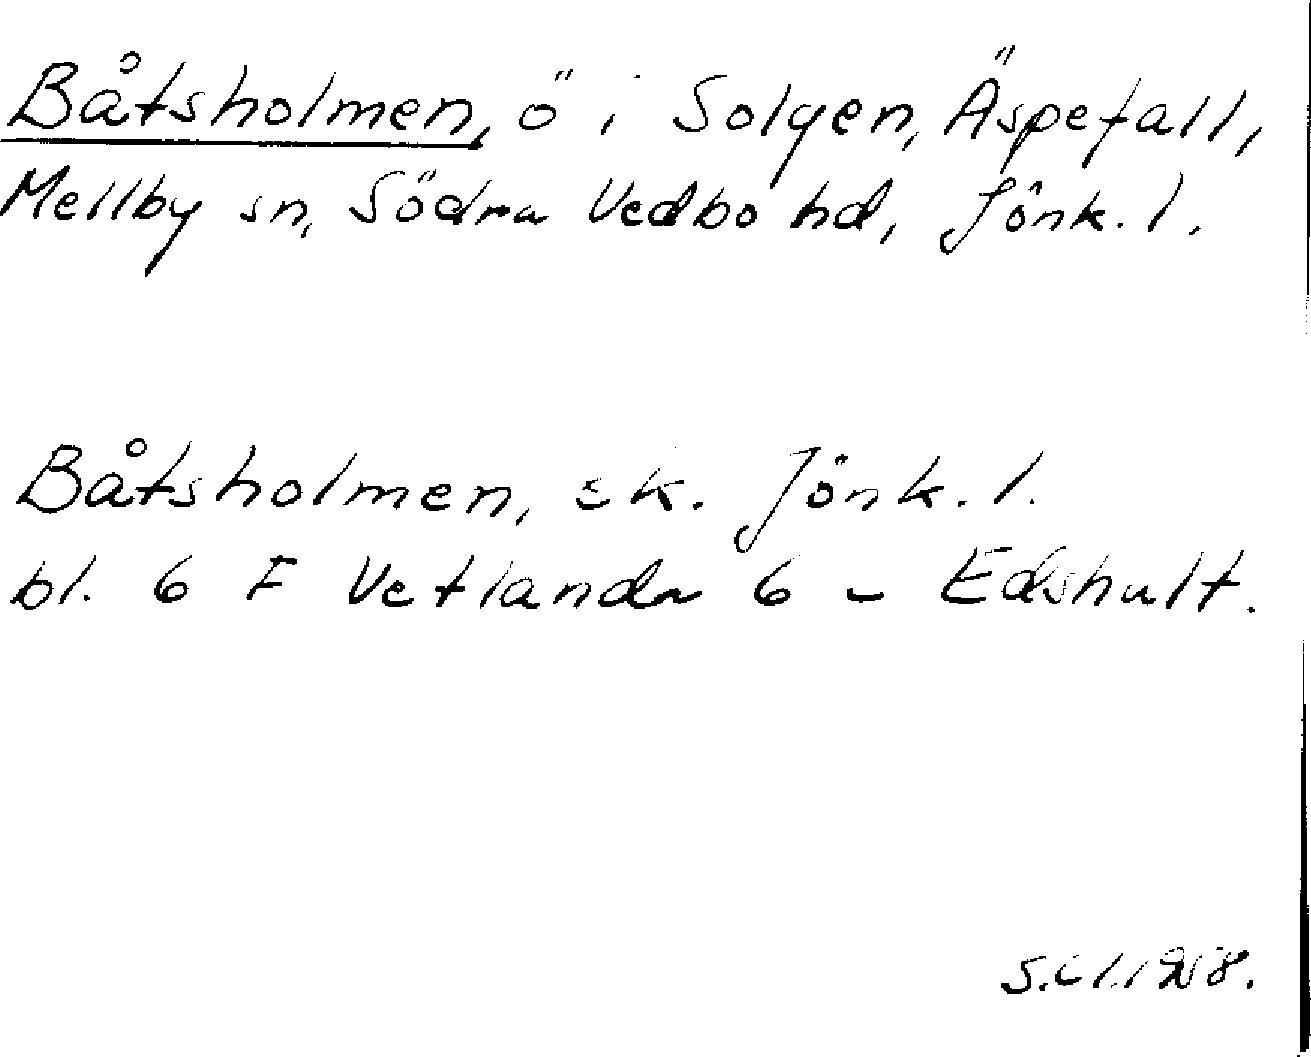 Båtsholmen, ö i Solgen, Äspefall,
Mellby sn, Södra Vedbo hd, Jönk. l.
Båtsholmen, ek. Jönk. l.
bl. 6 F Vetlanda 6 - Edshult.